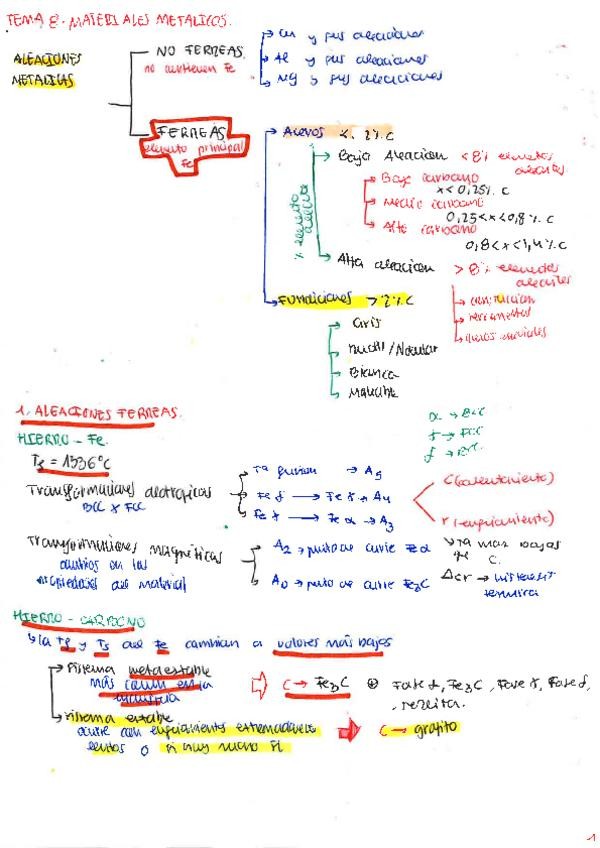 TEMA 8 - MATERIALES METALICOS.
ALEACIONES METALICAS
NO FERREAS
no contienen Fe
Cu y sus aleaciones
Al y sus aleaciones
Mg y sus aleaciones
FERREAS
elemento principal Fe
Aceros < 2% C
% elemento aleante
Baja Aleacion < 8% elementos aleantes
Bajo carbono
x < 0,25% C
Medio carbono
0,25 < x < 0,8% C
Alto carbono
0,8 < x < 1,4% C
Alta aleacion > 8% elementos aleantes
construccion
herramientas
especiales
Fundiciones > 2% C
Gris
Ductil / Nodular
Blanca
Maleable
1. ALEACIONES FERREAS.
α → BCC
γ → FCC
δ → BCC
HIERRO - Fe.
= 1536°C
Transformaciones alotropicas
BCC x FCC
Ta fusion →
Fe δ → Fe γ → A4
Fe γ → Fe α → A3
C (calentamiento)
r (enfriamiento)
Transformaciones magnéticas
cambios en las
propiedades del material
A2 → punto de curie Fe α
A0 → punto de curie Fe3C
Ta mas bajas
C.
Δcr → histeresis termica
HIERRO - CARBONO
la Tf y Ts del Fe cambian a valores más bajos
Sistema metaestable
más común en la industria
C → Fe3C
Fase α, Fe3C, Fase γ, Fase δ,
Sistema estable
ocurre con enfriamientos extremadamente
lentos o si hay mucho
C → grafito
1